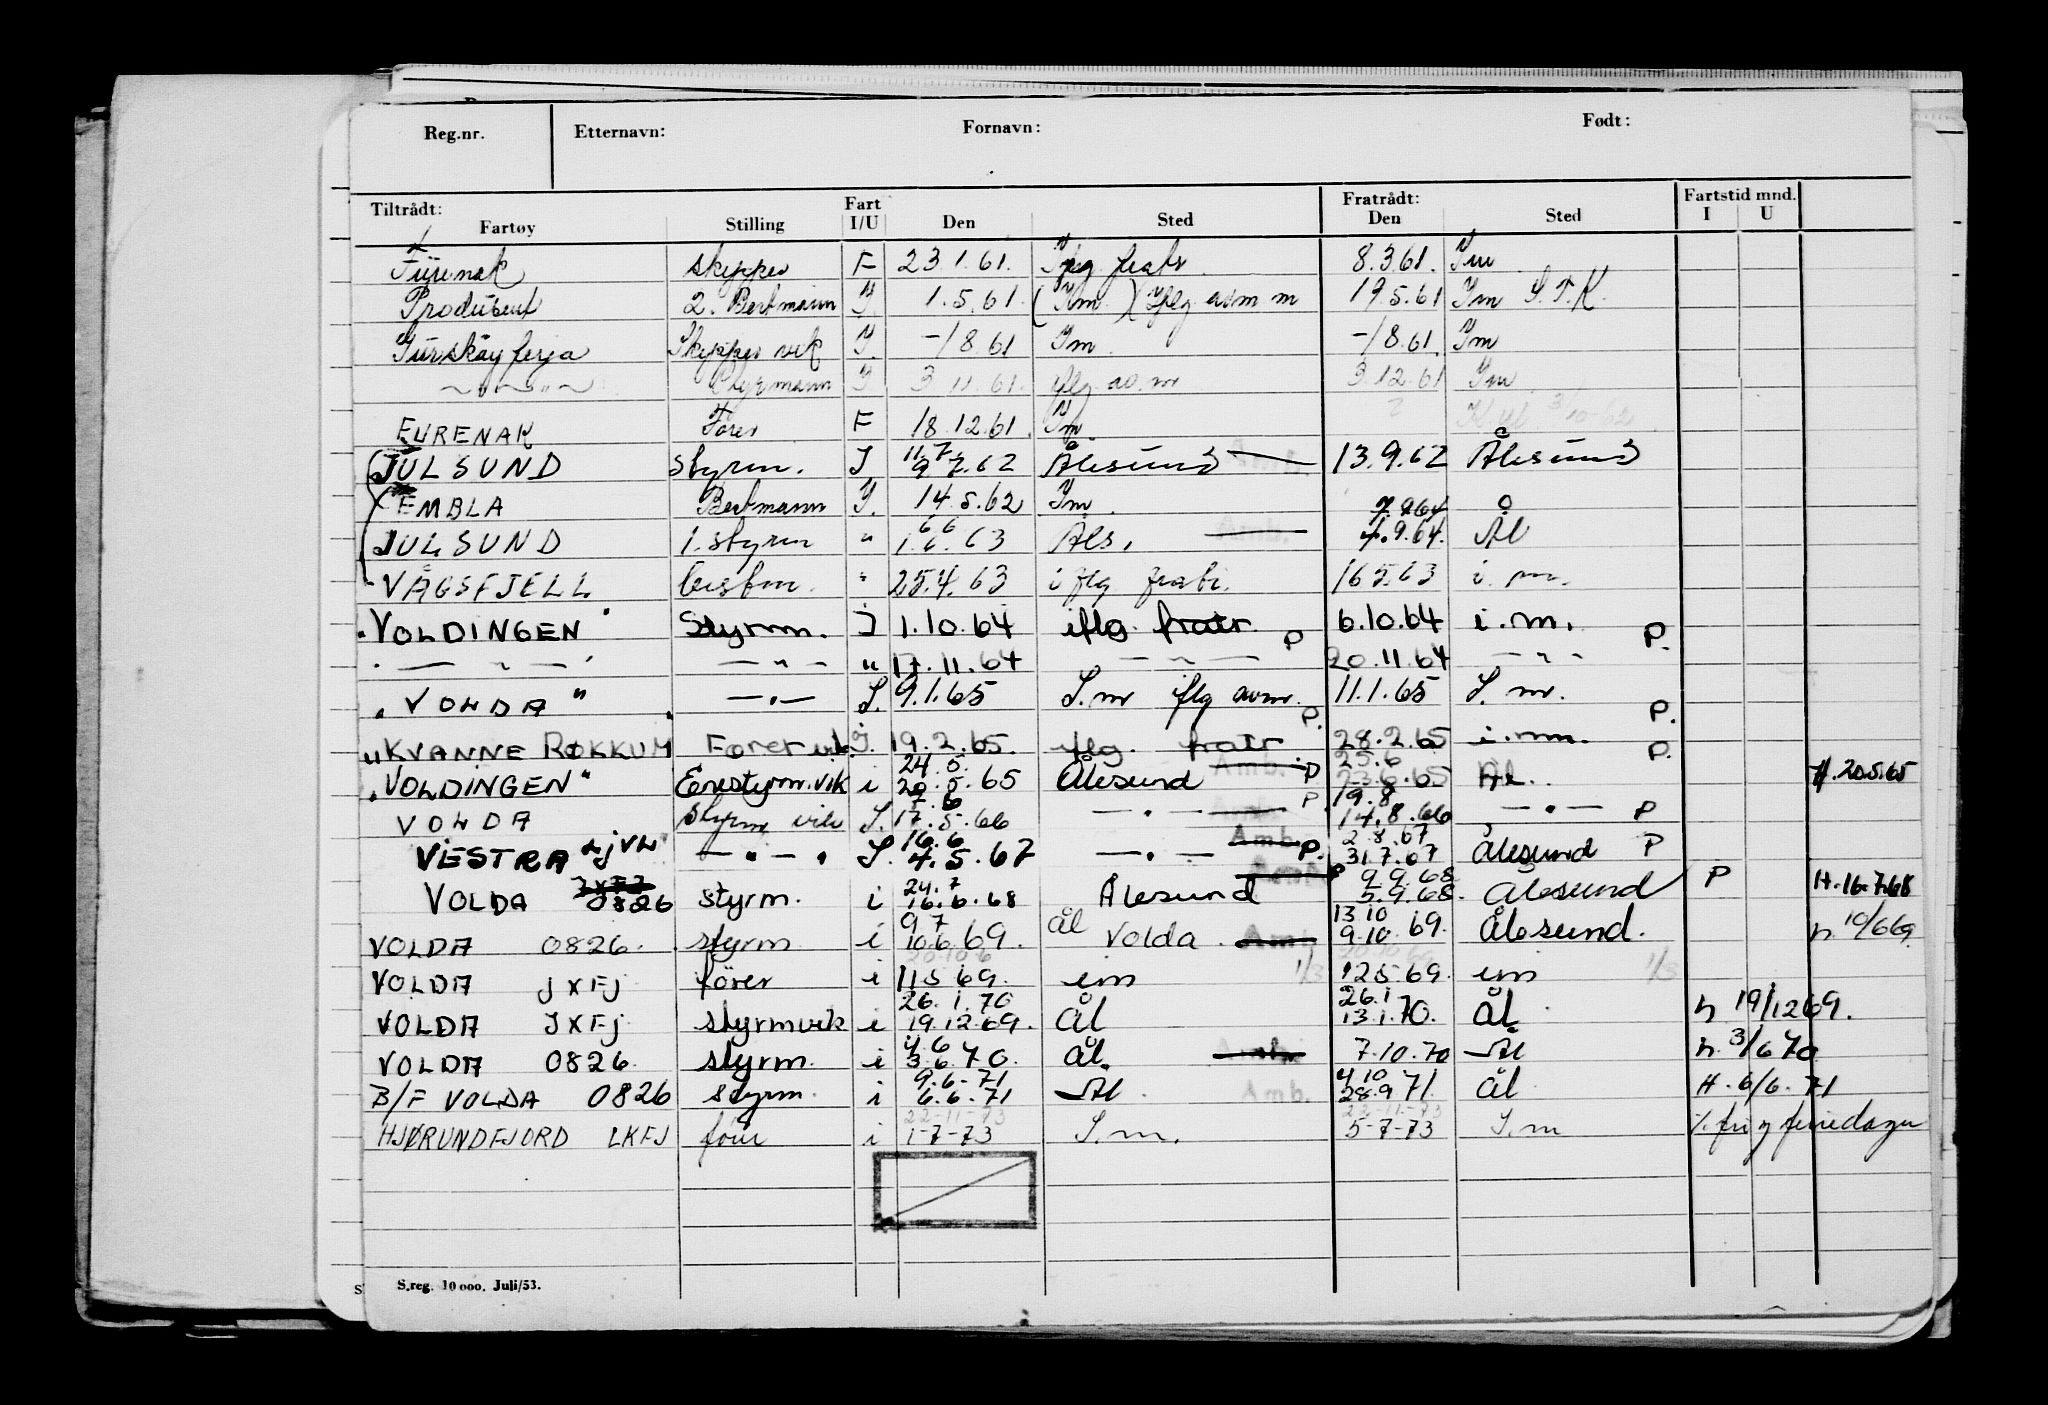 Reg.nr. Etternavn: Fornavn: Født:
Tiltrådt: Fart Fratrådt: Fartstid mnd.
Fartøy Stilling I/U Den Sted Den Sted I U
skipper F 23.1.61. iflg fratr 8.3.61. Im
Produsent 2. Bestmann I. 1.5.61. (Im.) Iflg avm m 19.5.61 Im S.T.K.
Gurskøy ferja Skipper vik I. -/8.61 Im. -/8.61. Im
— " — Styrmann I 3.11.61. iflg av.m 3.12.61 Im
FURENAK Fører F 18.12.61. Im. ? 3/10-62
JULSUND Styrm. I 11.7. 9.7.62 Ålesund Amb. 13.9.62 Ålesund
EMBLA Bestmann I. 14.5.62 Im.
JULSUND 1. styrm " 6.6 1.6.63 Åls. Amb. 7.9.64 4.9.64. Ål
VÅGSFJELL bestm. " 25.4.63 iflg fratr. 16.5.63 i.m.
"VOLDINGEN" Styrm. I 1.10.64 iflg. fratr. P 6.10.64 i.m. P.
— " — — " — " 17.11.64 — " — 20.11.64 — " —
"VOLDA" — " — I. 9.1.65 I.m iflg avm. P. 11.1.65 I.m. P.
"KVANNE RØKKUM" Fører vik. I. 19.2.65. iflg. fratr 28.2.65 i.m. P.
"VOLDINGEN" Enestyrm.vik i 24.5. 20.5.65 Ålesund Amb. P 25.6 23.6.65 Ål. H. 20.5.65
VOLDA styrm vik I. 7.6 17.5.66 — " — Amb. P. 19.8 14.8.66 — " — P
VESTRA LJVL — " — I. 16.6 4.5.67 — " — Amb. P. 2.8.67 31.7.67 Ålesund P
VOLDA JXFJ 0826 styrm. i 24.7 16.6.68 Ålesund Amb. P 9.9.68 5.9.68. Ålesund P H. 16.7.68
VOLDA 0826. styrm i 9 7 10.6.69. Ål Volda Amb. 13 10 9.10.69. Ålesund. h. 10/6 69.
VOLDA JXFJ fører i 11.5 69. im 1/3 12.5 69. im 1/3
VOLDA JXFJ styrmvik i 26.1.70 19.12.69. Ål 26.1 13.1.70. Ål h 19/12 69.
VOLDA 0826. styrm. i 4.6 3.6.70. Ål. Amb. 7.10.70 Ål h. 3/6 70
B/F VOLDA 0826 styrm. i 9.6.71 6.6.71 Ål Amb. 4 10 28.9 71. Ål H. 6/6. 71
HJØRUNDFJORD LKFJ fører i 22-11-73 1-7-73 I.m. 22-11-73 5-7-73 I.m %. fri og feriedager
S.reg. 10 000. Juli/53.